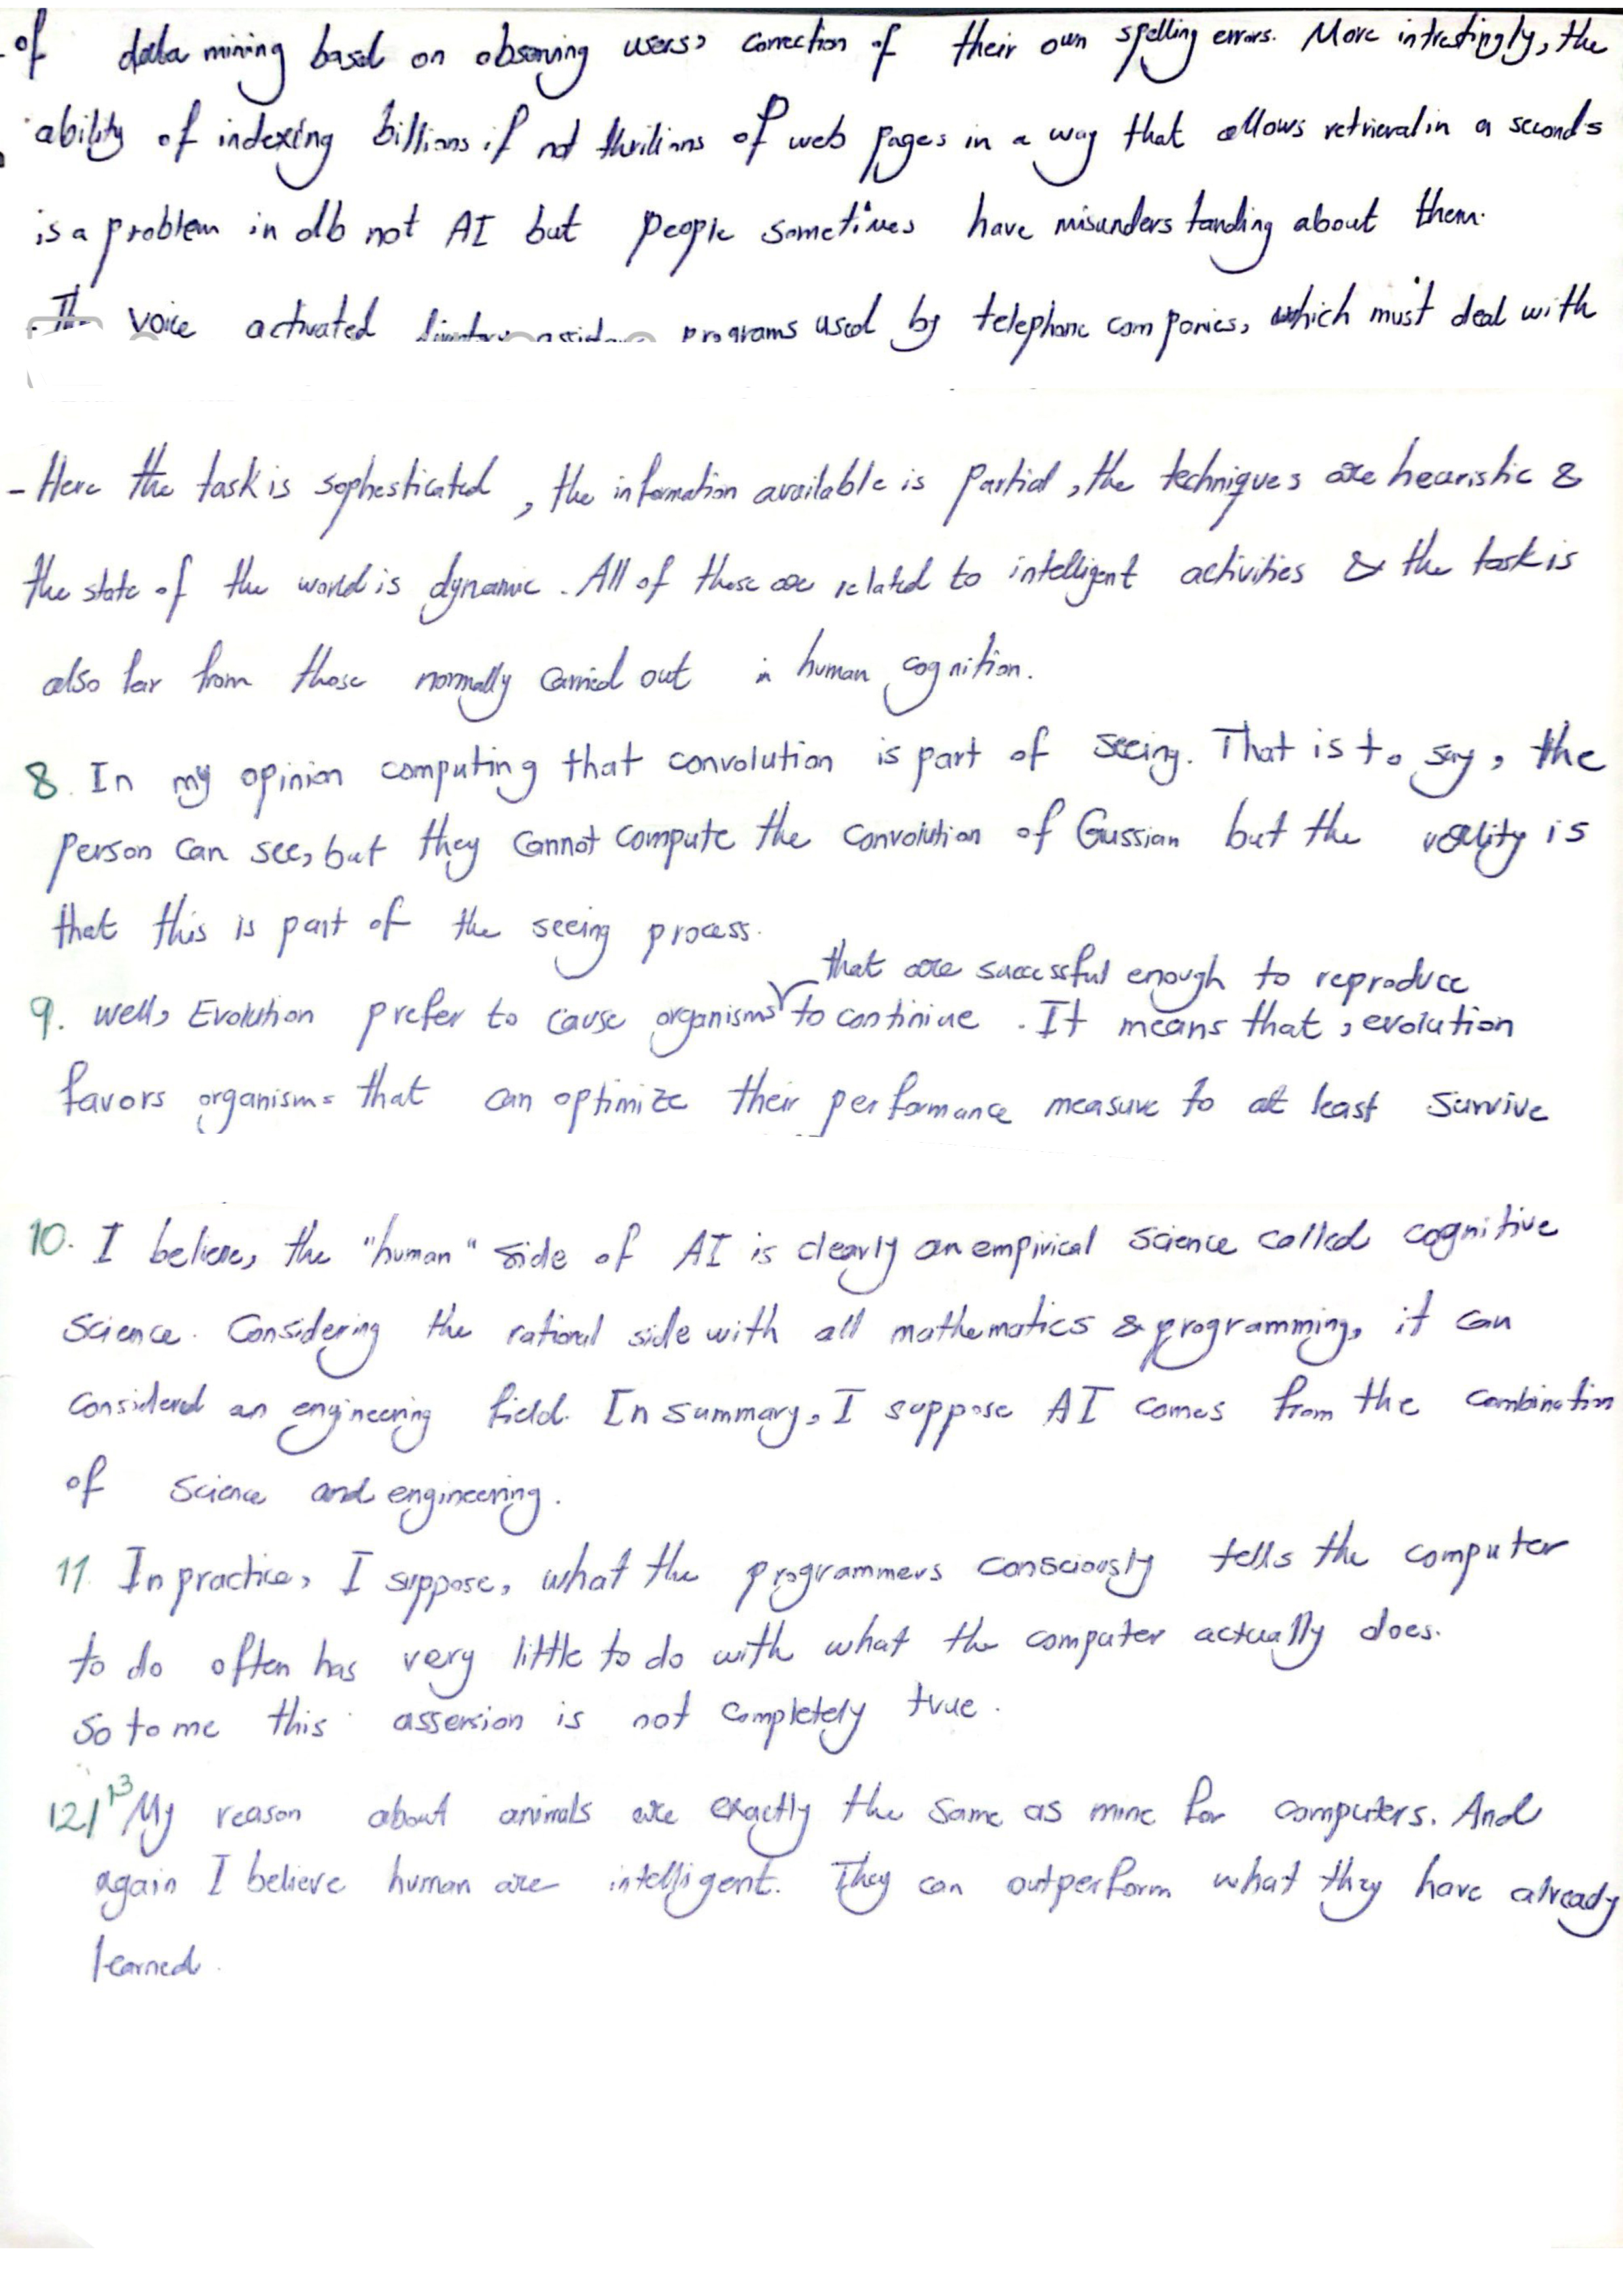 of data mining based on observing users, correction of their own spelling errors. More intrestingly, the
ability of indexing billions if not thrillions of web pages in a way that allows retrieval in a seconds
is a problem in db not AI but people sometimes have misunderstanding about them.
The voice activated directory assistance programs used by telephone companies, which must deal with
- Here the task is sophesticated, the information available is partial, the techniques are hearistic &
the state of the world is dynamic. All of these are related to intelligent activities & the task is
also far from those normally carried out in human cognition.
8. In my opinion computing that convolution is part of seeing. That is to say, the
person can see, but they cannot compute the convolution of Gussian but the reality is
that this is part of the seeing process.
that are successful enough to reproduce
9. well, Evolution prefer to cause organisms to continiue. It means that, evolution
favors organisms that can optimize their performance measure to at least survive
10. I believe, the "human" side of AI is clearly an empirical science called cognitive
science. Considering the rational side with all mathematics & programming, it can
considered an engineering field. In summary, I suppose AI comes from the combination
of science and engineering.
11. In practice, I suppose, what the programmers consciously tells the computer
to do often has very little to do with what the computer actually does.
So to me this assersion is not completely true.
12/13 My reason about animals are exactly the same as mine for computers. And
again I believe human are intelligent. They can outperform what they have already
learned.